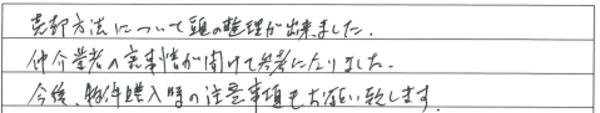 売却方法について頭の整理が出来ました.
仲介業者の裏事情が聞けて参考になりました.
今後、物件購入時の注意事項もお願い致します